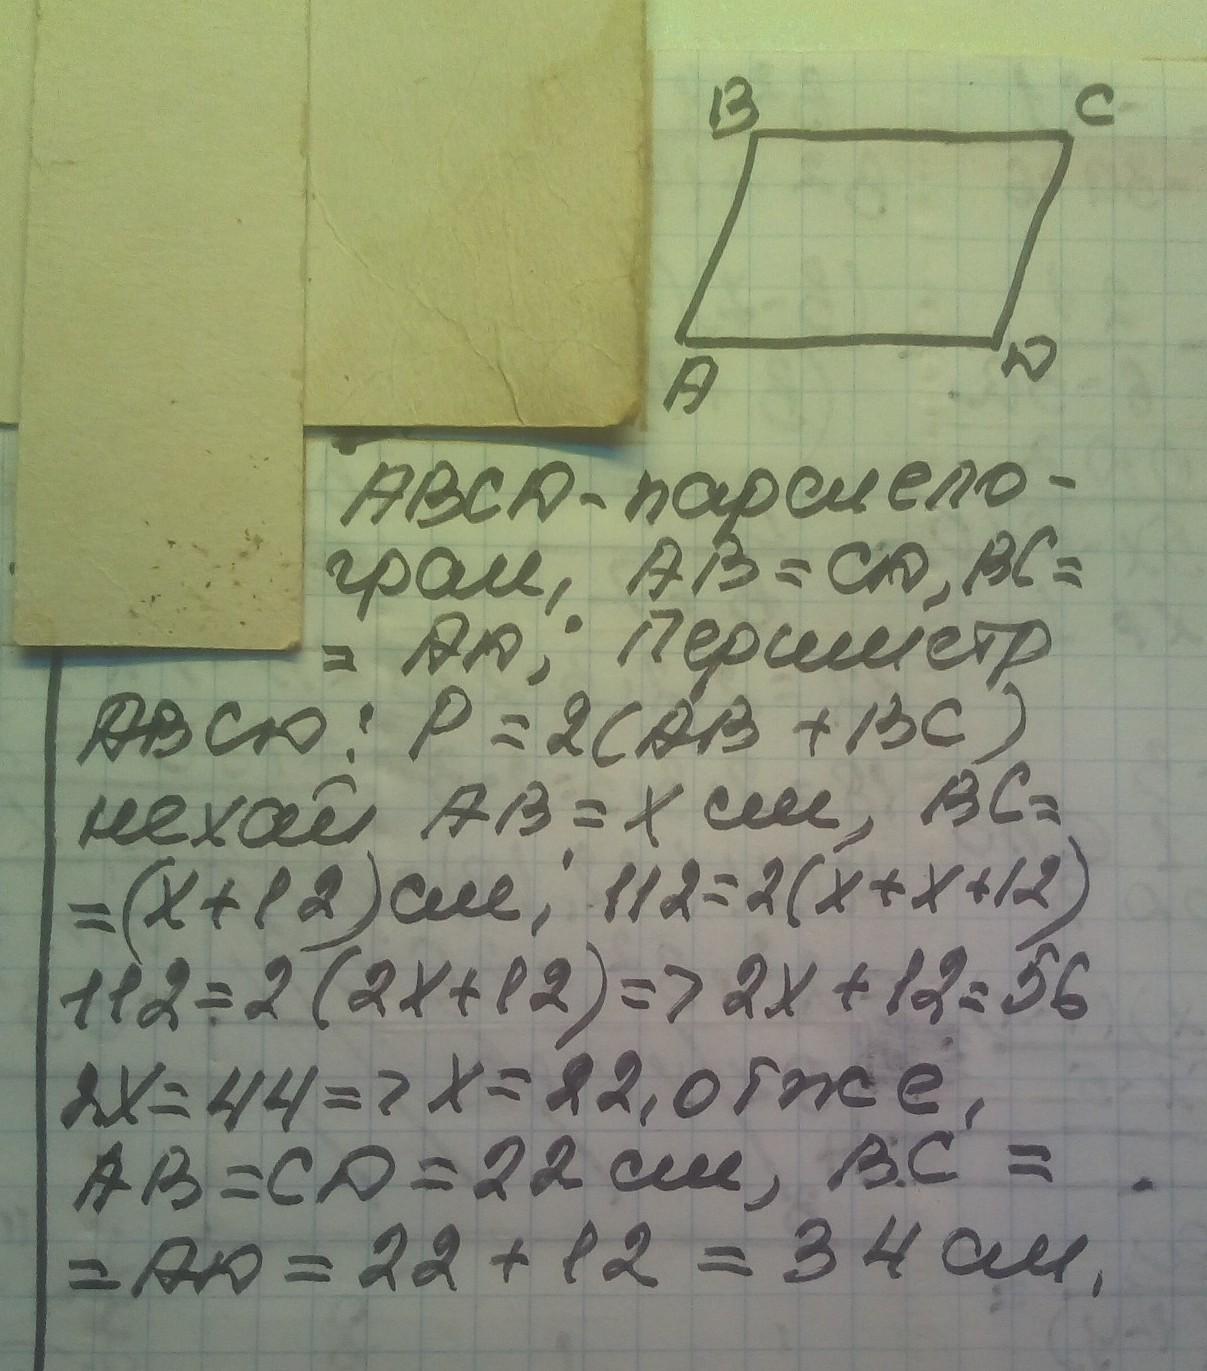 B C
A D
ABCD-паралело-
грам, AB=CD, BC=
= AD; Периметр
ABCD: P=2(AB+BC)
нехай AB=x см, BC=
=(x+12)см; 112=2(x+x+12)
112=2(2x+12)=>2x+12=56
2x=44=>x=22, отже,
AB=CD=22 см, BC =
= AD = 22 + 12 = 34 см.